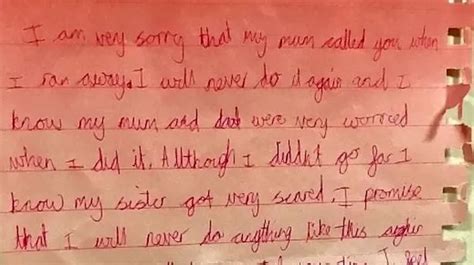 I am very sorry that my mum called you when
I ran away. I will never do it again and I
know my mum and dad were very worried
when I did it. Allthough I diddn't go far I
know my sister got very scared. I promise
that I will never do anything like this again
I feel